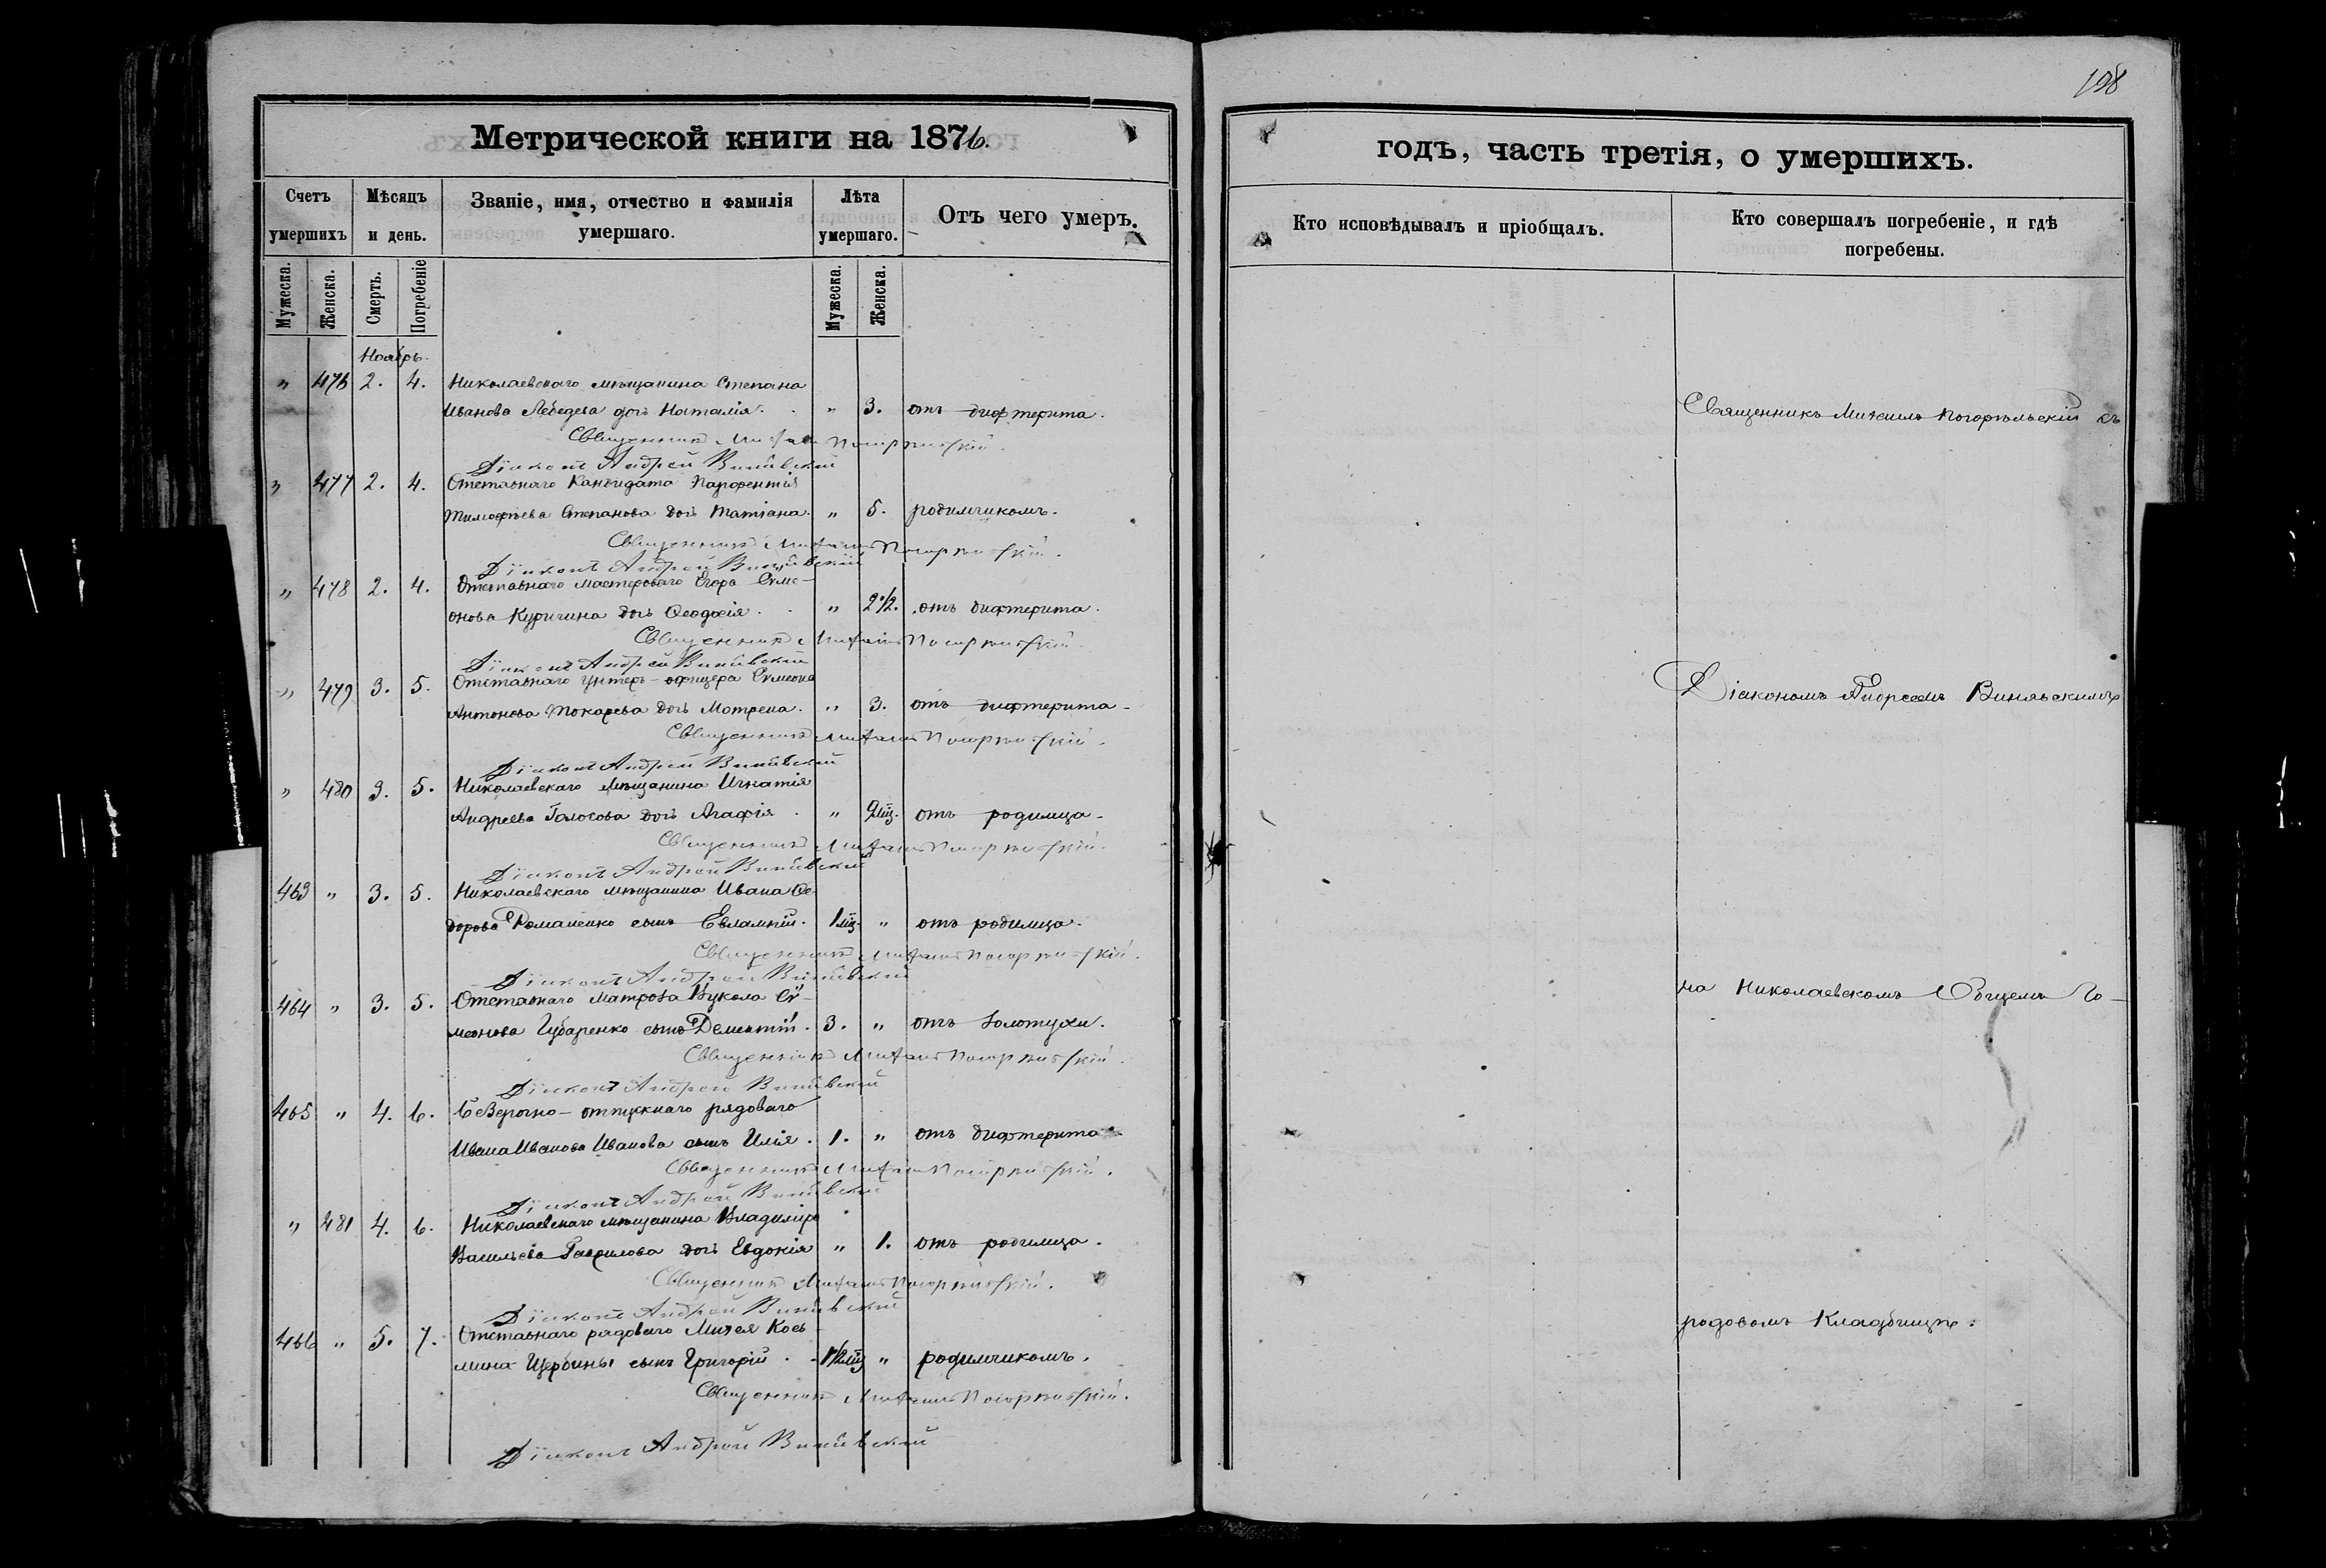 198
Метрической книги на 1876.
годъ, часть третія, о умершихъ.
Счетъ умершихъ
Мѣсяцъ и день.
Званіе, имя, отчество и фамилія умершаго.
Лѣта умершаго.
Отъ чего умеръ.
Кто исповѣдывалъ и пріобщалъ.
Кто совершалъ погребеніе, и гдѣ погребены.
Мужеска.
Женска.
Смерть.
Погребеніе
Мужеска.
Женска.
Ноябрь.
" 476 2. 4. Николаевскаго мѣщанина Степана
Иванова Лебедева дочь Наталія. " 3. отъ дифтерита.
Священникъ Михаилъ Погорѣльскій.
Діаконъ Андрей Винявскій
" 477 2. 4. Отставнаго Кандидата Парфентія
Тимофѣева Степанова дочь Татіана. " 5. родимчикомъ.
Священникъ Михаилъ Погорѣльскій.
Діаконъ Андрей Винявскій
" 478 2. 4. Отставнаго мастероваго Егора Симе-
онова Куричина дочь Ѳеодосія. " 2 1/2. отъ дифтерита.
Священникъ Михаилъ Погорѣльскій.
Діаконъ Андрей Винявскій
" 479 3. 5. Отставнаго унтеръ-офицера Симеона
Антонова Токарева дочь Матрена. " 3. отъ дифтерита
Священникъ Михаилъ Погорѣльскій.
Діаконъ Андрей Винявскій
" 480 3. 5. Николаевскаго мѣщанина Игнатія
Андреева Голосова дочь Агафія. " отъ родимца.
Священникъ Михаилъ Погорѣльскій.
Діаконъ Андрей Винявскій
463 " 3. 5. Николаевскаго мѣщанина Ивана Ѳе-
дорова Романенко сынъ Евлампій. 1 мц. " отъ родимца.
Священникъ Михаилъ Погорѣльскій.
Діаконъ Андрей Винявскій
464 " 3. 5. Отставнаго Матроса Вукола Си-
меонова Губаренко сынъ Дементій. 3. " отъ золотухи.
Священникъ Михаилъ Погорѣльскій.
Діаконъ Андрей Винявскій
465 " 4. 6. Безсрочно-отпускнаго рядоваго
Ивана Иванова Иванова сынъ Илія. 1. " отъ дифтерита.
Священникъ Михаилъ Погорѣльскій.
Діаконъ Андрей Винявскій
" 481 4. 6. Николаевскаго мѣщанина Владиміра
Васильева Гаврилова дочь Евдокія " 1. отъ родимца.
Священникъ Михаилъ Погорѣльскій.
Діаконъ Андрей Винявскій
466 " 5. 7. Отставнаго рядоваго Михея Косъ-
мина Щербины сынъ Григорій. " родимчикомъ.
Священникъ Михаилъ Погорѣльскій.
Діаконъ Андрей Винявскій
Священникъ Михаилъ Погорѣльскій съ
Діакономъ Андреемъ Винявскимъ
на Николаевскомъ Общемъ Го-
родовомъ Кладбищѣ.